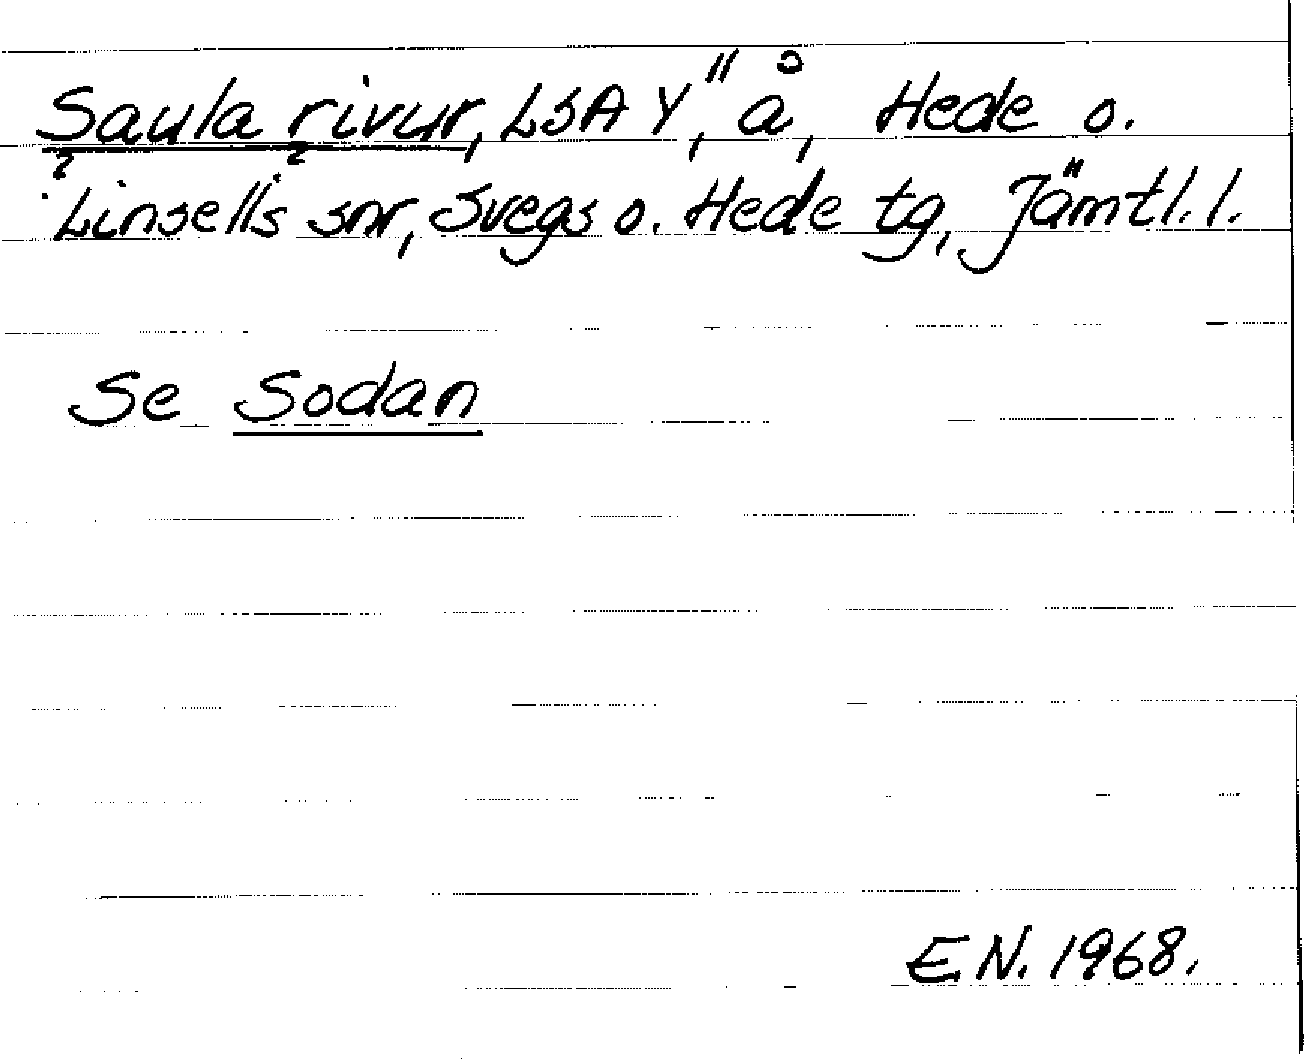 Saula rivur, LSA Y11, å, Hede o.
Linsells snr, Svegs o. Hede tg, Jämtl. l.
Se Sodan
E.N. 1968.